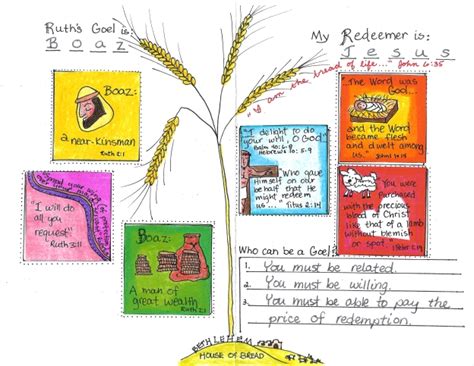 Ruth's Goel is:
Boaz
My Redeemer is:
Jesus
"I am the bread of life..." John 6:35
Boaz:
a near-Kinsman
Ruth 2:1
"I will do
all you
request"
Ruth 3:11
Boaz:
A man of
great wealth
Ruth 2:1
"I delight to do
your will, O God"
Psalm 40:6-8
Hebrews 10:5-9
Who gave
Himself on our
behalf that He
might redeem
us..." Titus 2:14
"The Word was
God...
and the Word
became flesh
and dwelt among
us..."
John 1:14
"You were
purchased
with the precious
blood of Christ
like that of a lamb
without blemish
or spot.
1 Peter 1:19
Who can be a Goel?
1. You must be related.
2. You must be willing.
3. You must be able to pay the
price of redemption.
BETHLEHEM
HOUSE OF BREAD